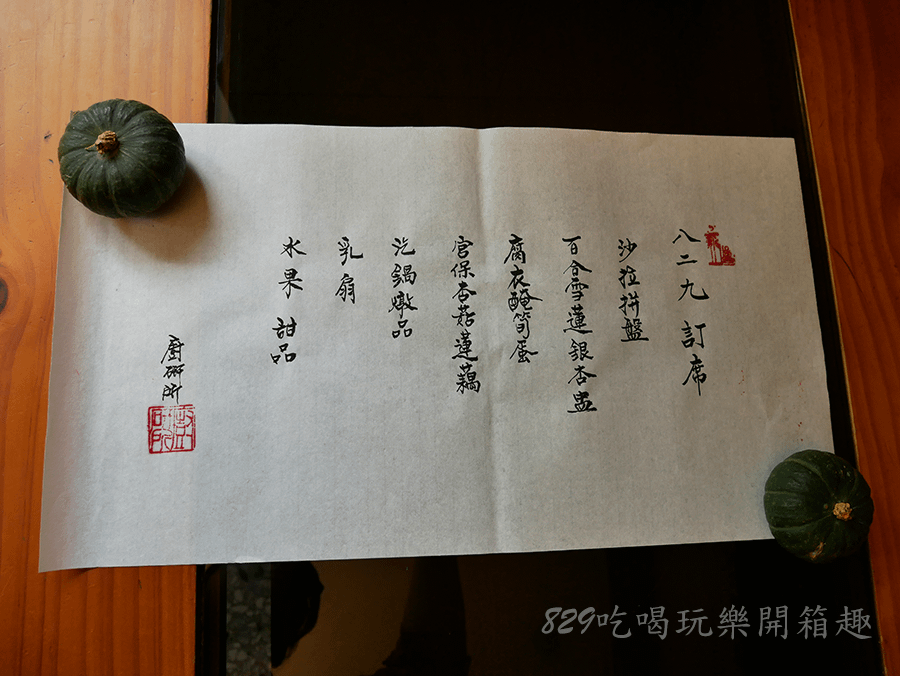 八二九 訂席
沙拉拼盤
百合雪蓮銀杏盅
腐衣醃筍蛋
宮保杏菇蓮藕
汽鍋燉品
乳扇
水果 甜品
廚研所
829吃喝玩樂開箱趣